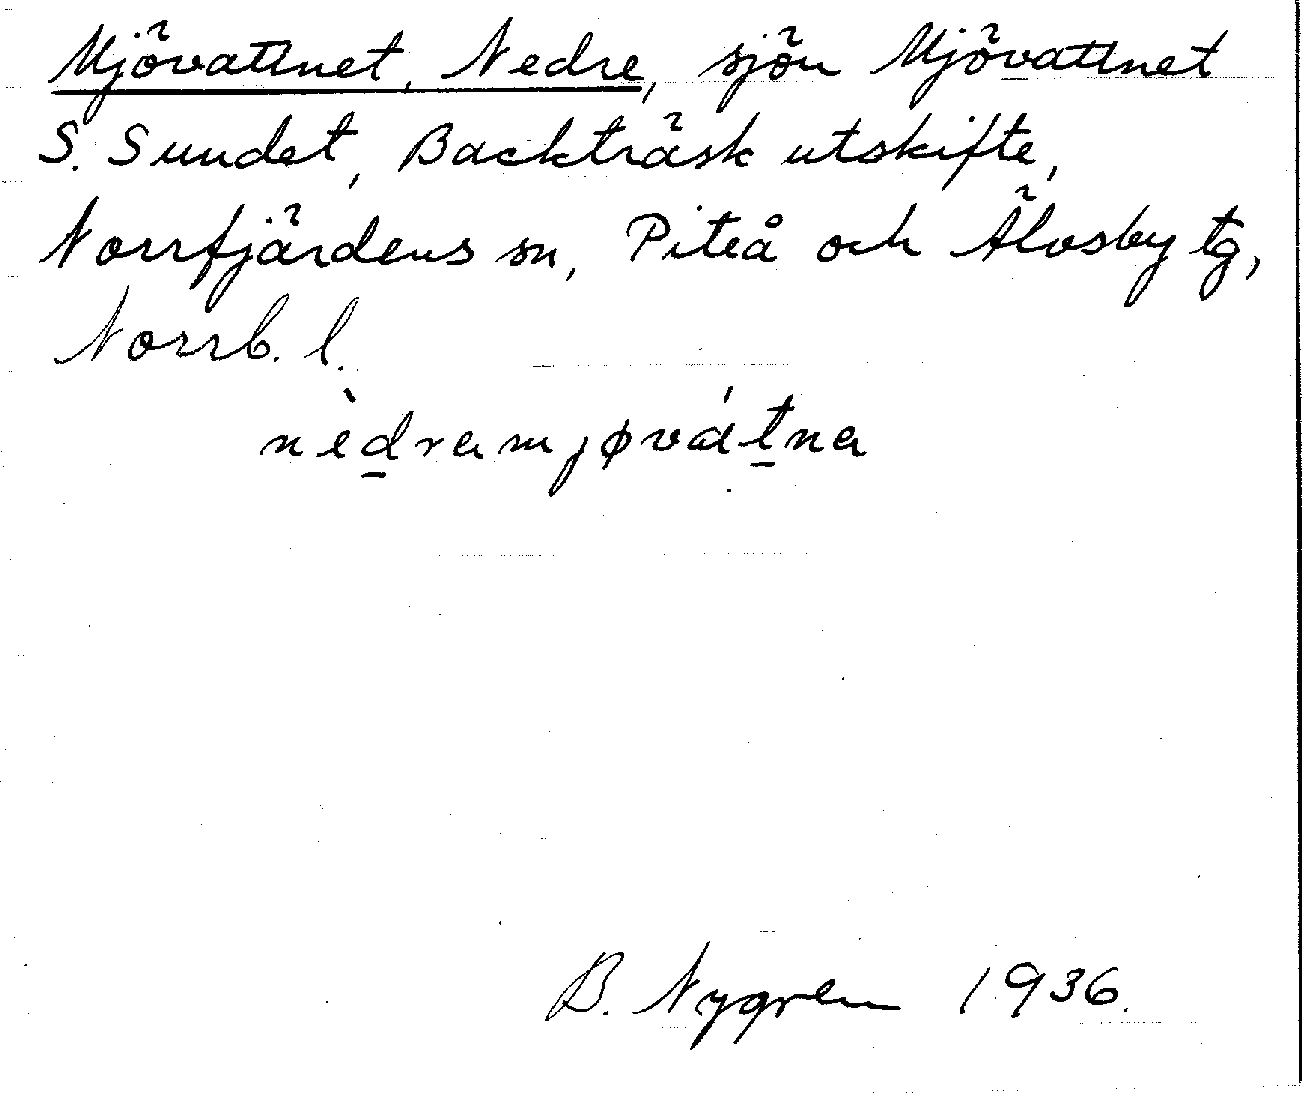 Mjövattnet, Nedre, sjön Mjövattnet
S. Sundet, Backträsk utskifte,
Norrfjärdens sn, Piteå och Älvsby tg,
Norrb. l.
nèd̲ramjøvát̲na
B. Nygren 1936.